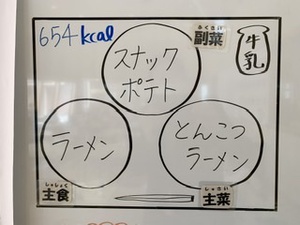 654kcal
ふくさい
副菜
牛乳
スナック
ポテト
ラーメン
とんこつ
ラーメン
しゅしょく
主食
しゅさい
主菜